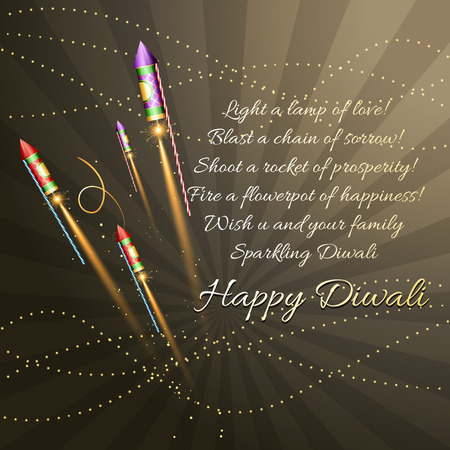 Light a lamp of love!
Blast a chain of sorrow!
Shoot a rocket of prosperity!
Fire a flowerpot of happiness!
Wish u and your family
Sparkling Diwali
Happy Diwali